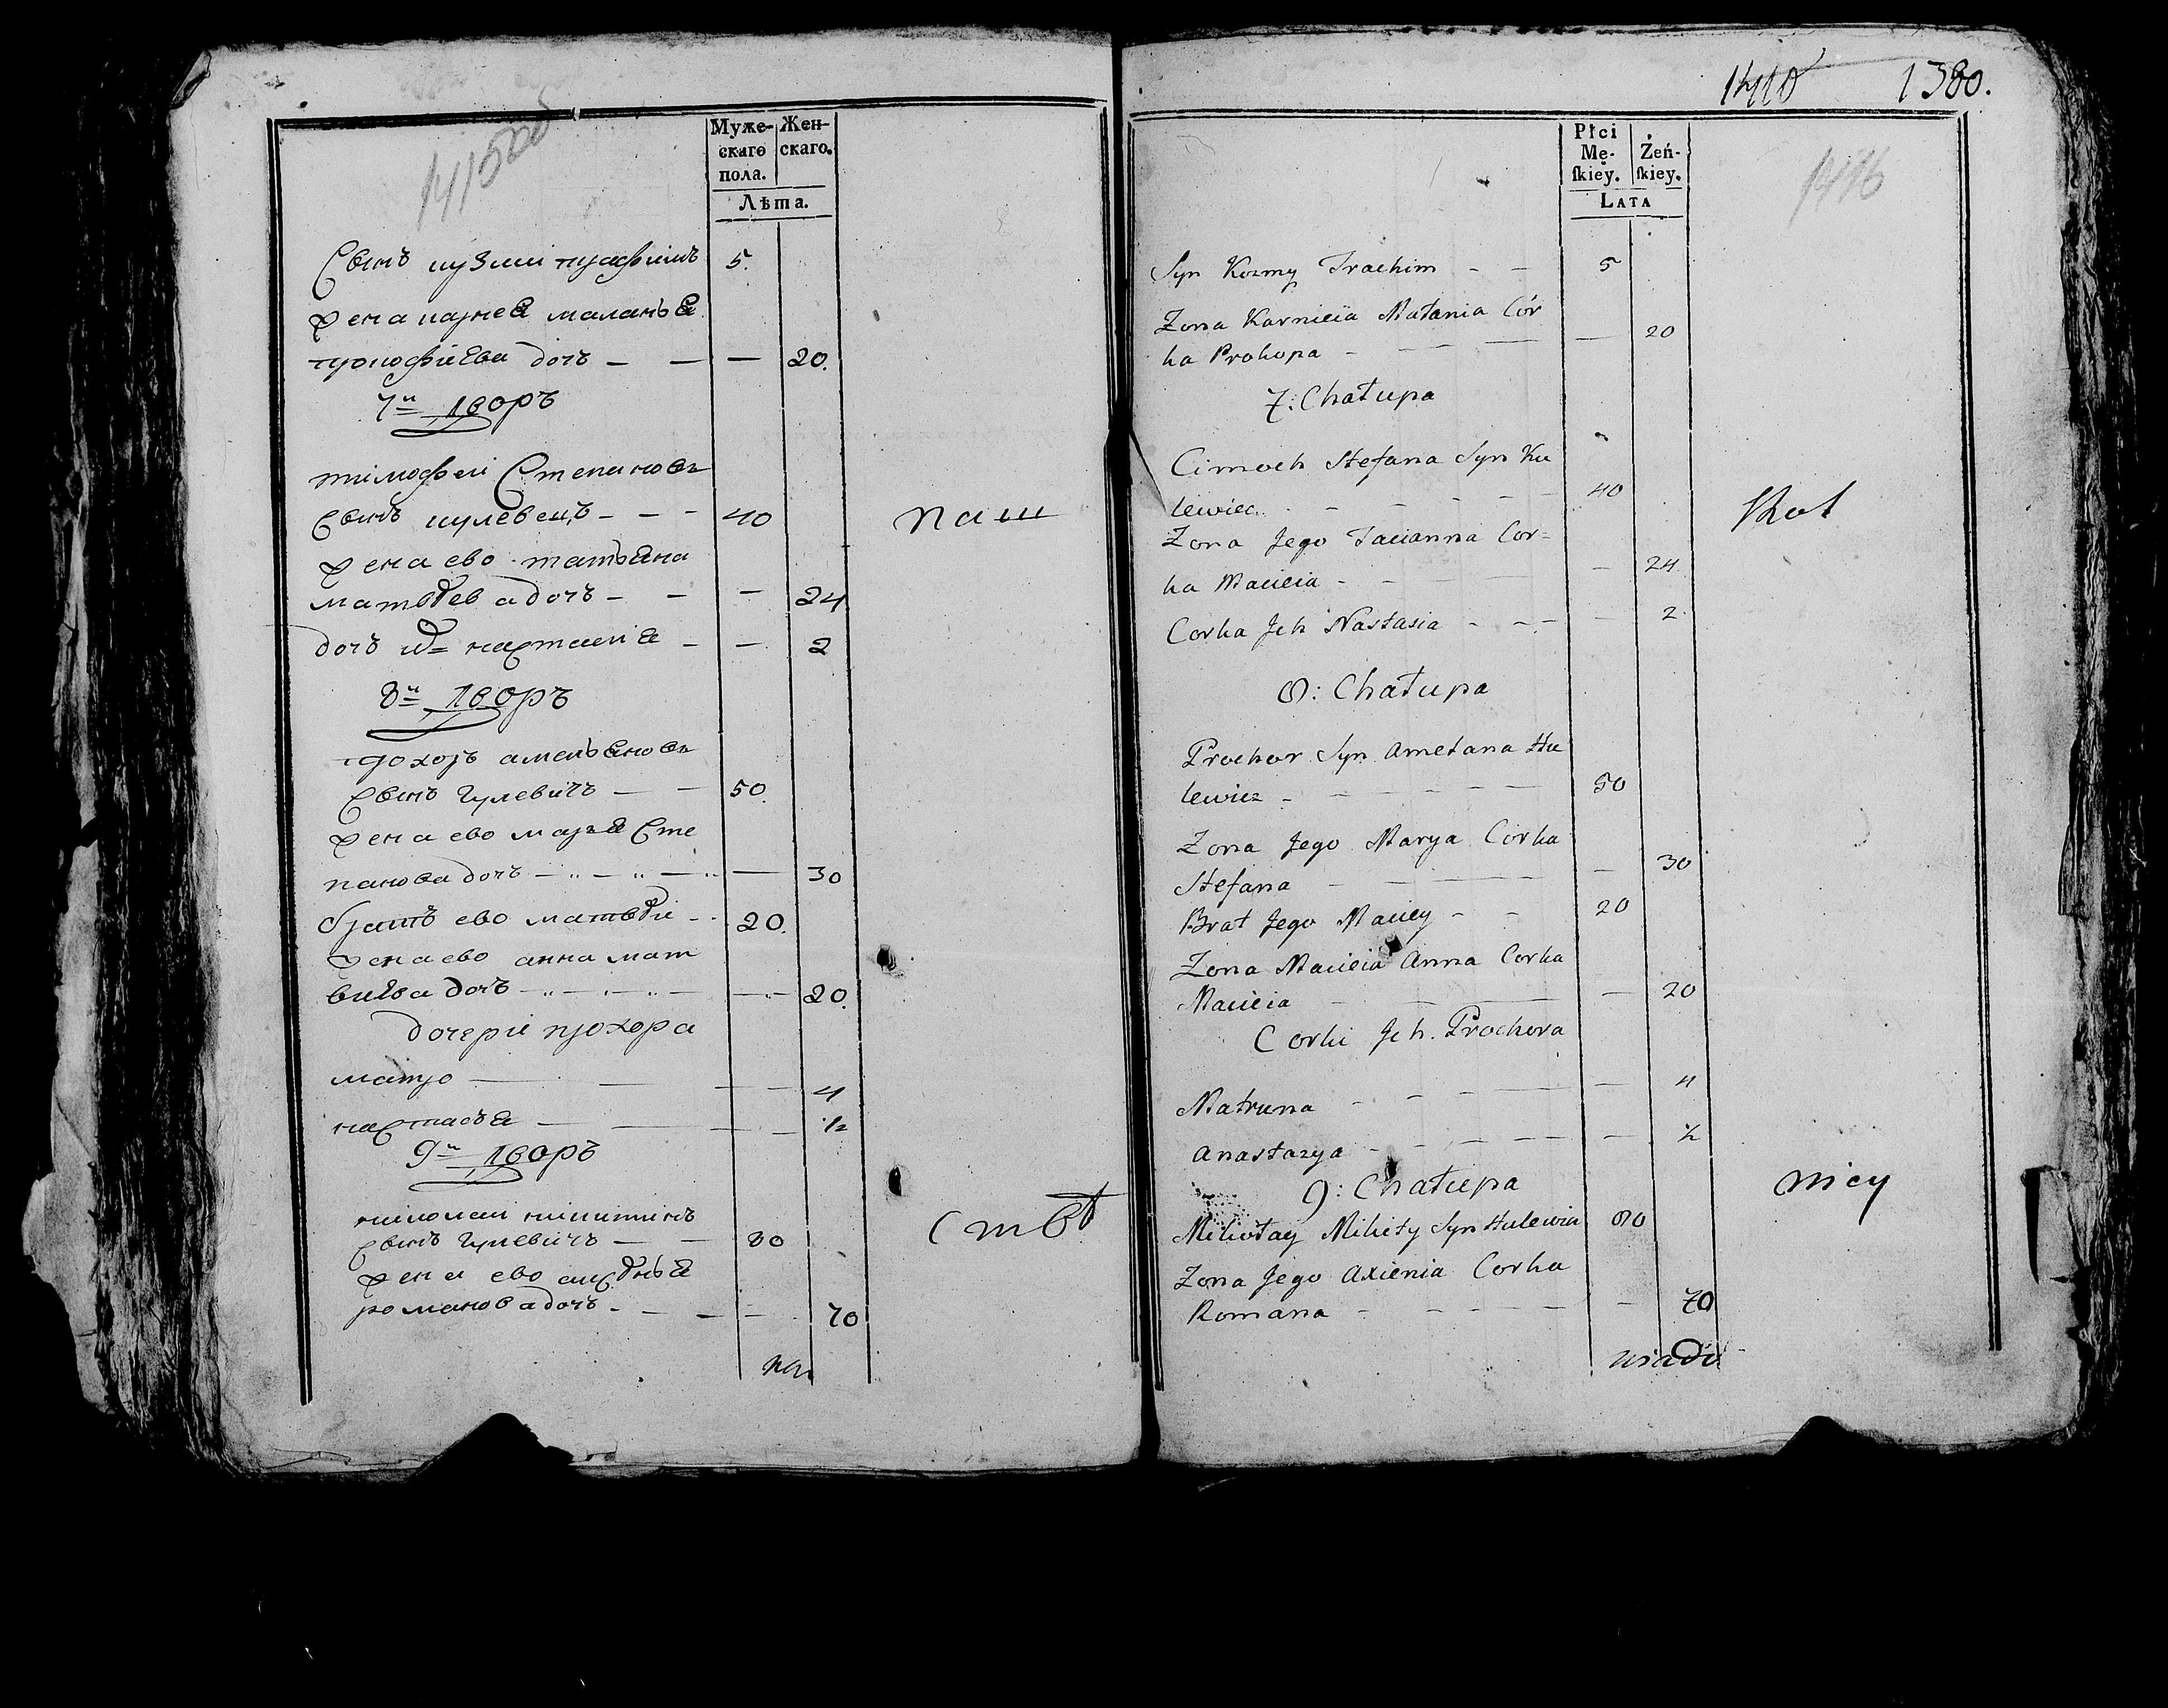 Муже- Жен-
скаго скаго.
пола.
Лѣта.
Сынъ кузми трофимъ 5.
жена карнея маланья
прокофиева дочъ — — — 20.
7й дворъ
тимофеи Степановъ
сынъ кулевецъ - - - 40 паш
жена ево татьяна
матвѣева дочъ - — — 24
дочъ их настасия - — 2
8й дворъ
прохоръ амельяновъ
сынъ гулевичъ — — 50.
жена ево марья Сте
панова дочъ — — — — 30
братъ ево матвѣи - - 20.
жена ево анна мат
виева дочъ — — — — 20.
дочери прохора
матро — — — — 4
настасья — — — — ½
9й дворъ
николаи никитинъ
сынъ гулевичъ — — 80 ств
жена ево
романова дочъ - — — — 70
1380.
1416
Płci
Mę- Żeń-
skiey. skiey.
LATA
Syn Kozmy Trachim - - 5
Zona Karnieia Małania Cór
ka Prokopa - — — — 20
7: Chałupa
Cimoch Stefana Syn Ku
lewiec - - - - 40 Skot
Zona Jego Tacianna Cor=
ka Macieia - - — - 24
Corka Jch Nastasia - - - - 2
8: Chałupa
Prochor Syn Amelana Hu
lewicz - — — — 50
Zona Jego Marya Corka
Stefana — — — - 30
Brat Jego Maciey - - 20
Zona Macieia Anna Corka
Macieia — — — — 20
Corki Jch Prochora
Matruna - - - — — 4
Anastazya - - — — — ½
9: Chatupa nicy
Mikołay Mikity Syn Hulewicz 80
Zona Jego Axienia Corka
Romana - - - — — 70